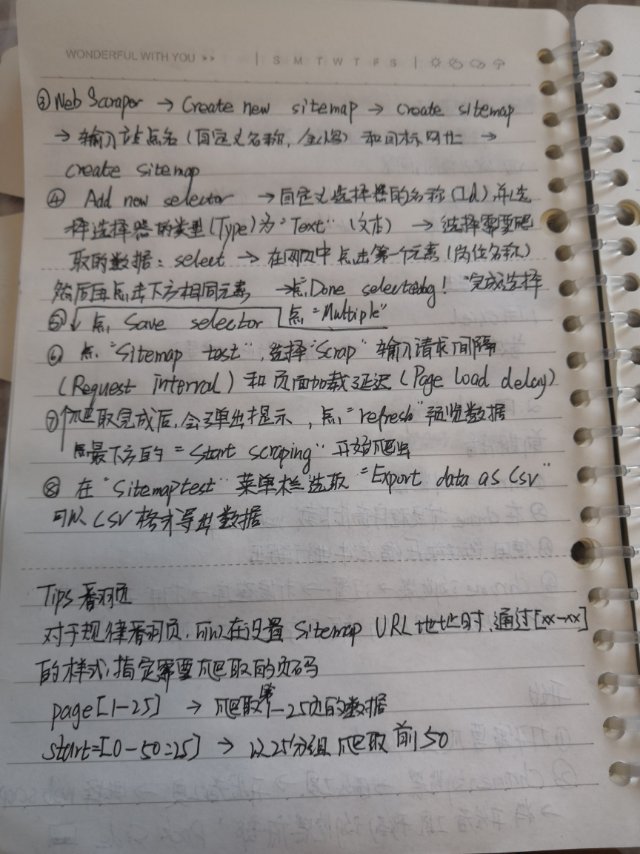 WONDERFUL WITH YOU >> | S M T W T F S |
③ Web Scraper → Create new sitemap → create sitemap
→ 输入站点名(自定义名称, ) 和目标网址 →
create sitemap
④ Add new selector → 自定义选择器的名称(Id), 并选
择选择器的类型(Type)为"Text"(文本) → 选择需要爬
取的数据: select → 在网页中点击第一个元素(岗位名称)
然后再点击下方相同元素 → 点"Done selecting!"完成选择
⑤ 点 Save selector 点"Multiple"
⑥ 点"Sitemap test", 选择"Scrap" 输入请求间隔
(Request interval) 和页面加载延迟(Page load delay)
⑦ 爬取完成后, 会弹出提示, 点"refresh"预览数据
点最下方的"Start scraping"开始爬虫
⑧ 在"Sitemaptest"菜单栏选取"Export data as CSV"
可以CSV格式导出数据
Tips 番羽页
对于规律番羽页, 可以在设置 Sitemap URL地址时, 通过[xx-xx]
的样式, 指定需要爬取的页码
page[1-25] → 爬取第1-25页的数据
start=[0-50=25] → 以25分组 爬取前50